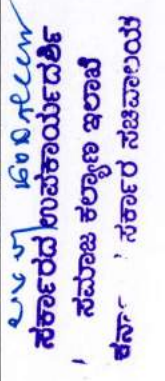 ಸರ್ಕಾರದ ಉಪಕಾರ್ಯದರ್ಶಿ
ಸಮಾಜ ಕಲ್ಯಾಣ ಇಲಾಖೆ
ಸರ್ಕಾರ ಸಚಿವಾಲಯ